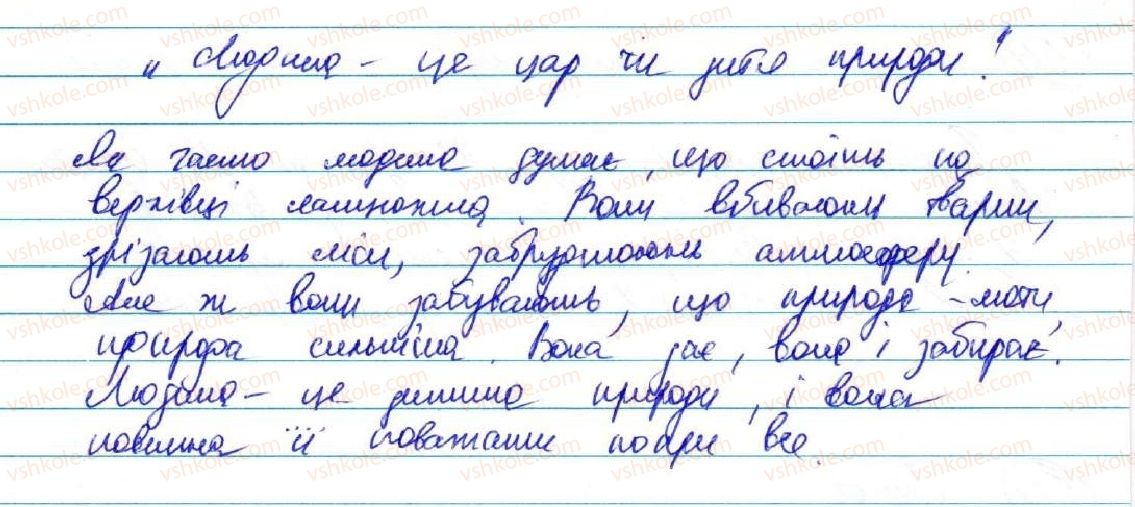 „Людина – це цар чи дитя природи!
Як часто людина думає, що стоїть на
верхівці ланцюжка. Вони вбивають тварин,
зрізають ліси, забруднюють атмосферу.
Але ж вони забувають, що природа – мати,
природа сильніша. Вона дає, вона і забирає.
Людина – це дитина природи, і вона
повинна її поважати попри все.
vshkole.com